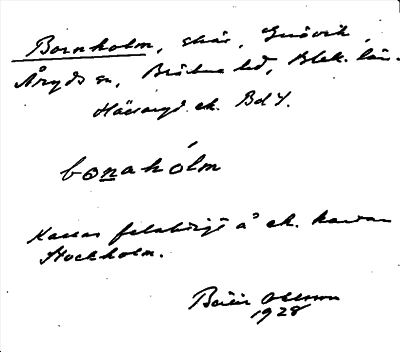 Bornholm, skär, Gnövik,
Åryds sn, Bräkne hd, Blek. län.
Hässaryd ek. Bd 4.
bonahólm
Kallas felaktigt å ek. kartan
Stockholm.
Ohlsson
1928